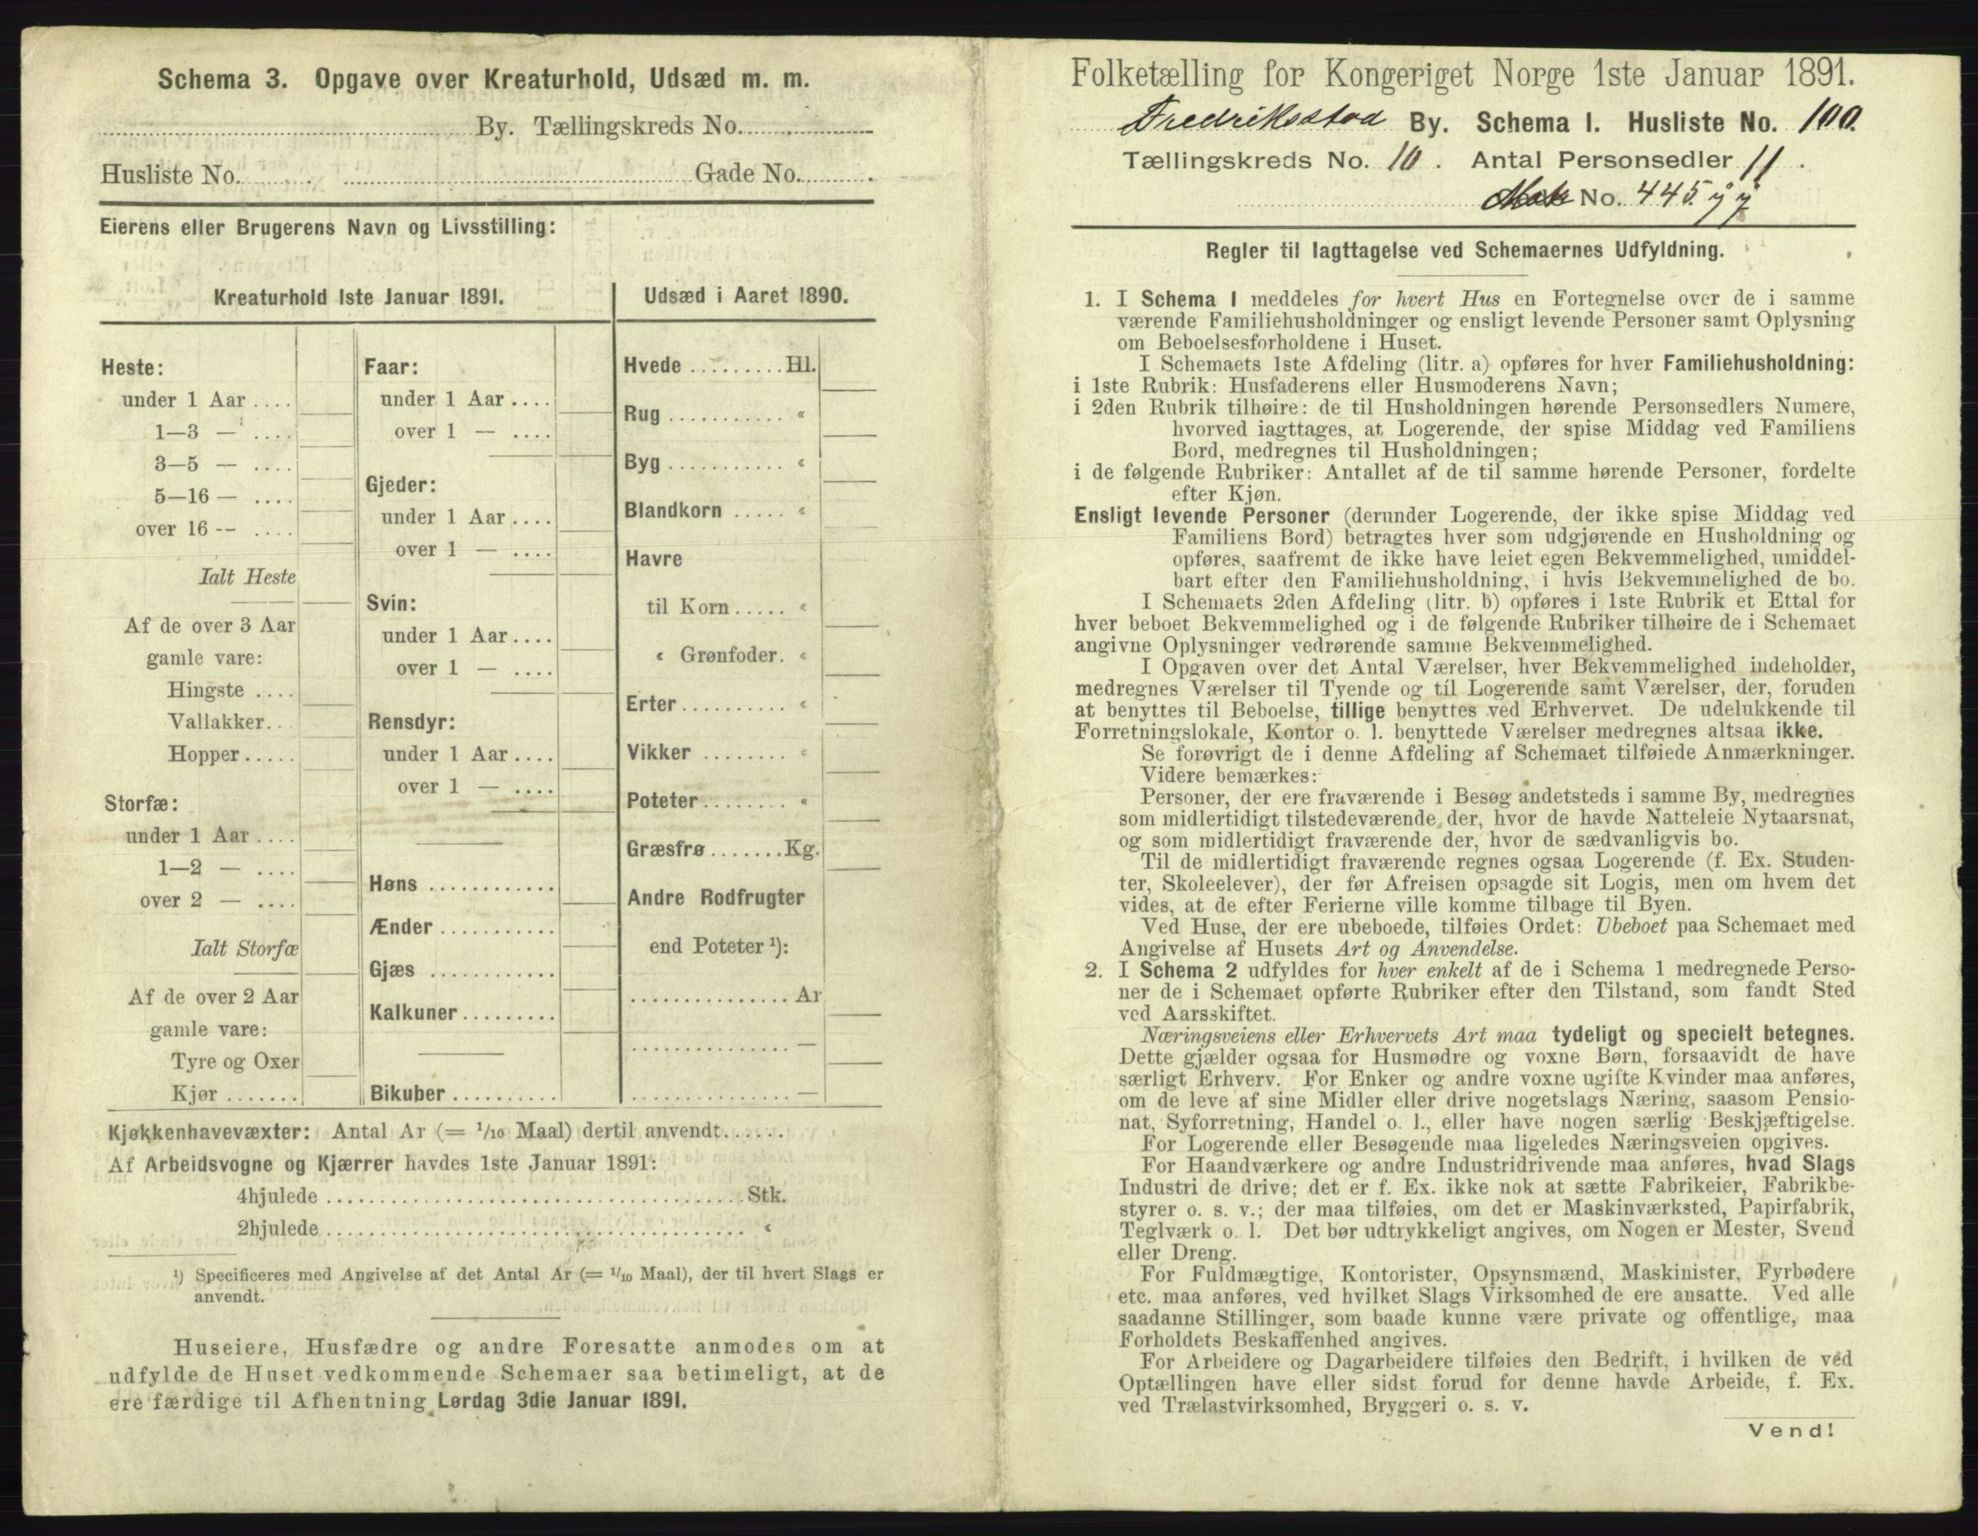 Schema 3. Opgave over Kreaturhold, Udsæd m. m.
By. Tællingskreds No.
Husliste No. Gade No.
Eierens eller Brugerens Navn og Livsstilling:
Kreaturhold 1ste Januar 1891.
Heste:
under 1 Aar ....
1—3 — ....
3—5 — ....
5—16 — ....
over 16 -- ....
Ialt Heste
Af de over 3 Aar
gamle vare:
Hingste ....
Vallakker...
Hopper.....
Storfæ:
under 1 Aar ....
1—2 — ....
over 2 — ....
Ialt Storfæ
Af de over 2 Aar
gamle vare:
Tyre og Oxer
Kjør .......
Faar:
under 1 Aar ....
over 1 — ....
Gjeder:
under 1 Aar ....
over 1 — ....
Svin:
under 1 Aar ....
over 1 — ....
Rensdyr:
under 1 Aar ....
over 1 — ....
Høns ............
Ænder ...........
Gjæs ............
Kalkuner.........
Bikuber..........
Udsæd i Aaret 1890.
Hvede .........Hl.
Rug ........... «
Byg ........... «
Blandkorn ..... «
Havre
til Korn..... «
« Grønfoder. «
Erter.......... «
Vikker ........ «
Poteter........ «
Græsfrø.......Kg.
Andre Rodfrugter
end Poteter ¹):
...............Ar
...............—
...............—
Kjøkkenhavevæxter: Antal Ar (= 1/10 Maal) dertil anvendt......
Af Arbeidsvogne og Kjærrer havdes 1ste Januar 1891:
4hjulede ......................................Stk.
2hjulede ...................................... «
¹) Specificeres med Angivelse af det Antal Ar (= 1/10 Maal), der til hvert Slags er
anvendt.
Huseiere, Husfædre og andre Foresatte anmodes om at
udfylde de Huset vedkommende Schemaer saa betimeligt, at de
ere færdige til Afhentning Lørdag 3die Januar 1891.
Folketælling for Kongeriget Norge 1ste Januar 1891.
Fredriksstad By. Schema I. Husliste No. 100.
Tællingskreds No. 10. Antal Personsedler 11.
No. 445.
Regler til Iagttagelse ved Schemaernes Udfyldning.
1. I Schema I meddeles for hvert Hus en Fortegnelse over de i samme
værende Familiehusholdninger og ensligt levende Personer samt Oplysning
om Beboelsesforholdene i Huset.
I Schemaets 1ste Afdeling (litr. a) opføres for hver Familiehusholdning:
i 1ste Rubrik: Husfaderens eller Husmoderens Navn;
i 2den Rubrik tilhøire: de til Husholdningen hørende Personsedlers Numere,
hvorved iagttages, at Logerende, der spise Middag ved Familiens
Bord, medregnes til Husholdningen;
i de følgende Rubriker: Antallet af de til samme hørende Personer, fordelte
efter Kjøn.
Ensligt levende Personer (derunder Logerende, der ikke spise Middag ved
Familiens Bord) betragtes hver som udgjørende en Husholdning og
opføres, saafremt de ikke have leiet egen Bekvemmelighed, umiddel-
bart efter den Familiehusholdning, i hvis Bekvemmelighed de bo.
I Schemaets 2den Afdeling (litr. b) opføres i 1ste Rubrik et Ettal for
hver beboet Bekvemmelighed og i de følgende Rubriker tilhøire de i Schemaet
angivne Oplysninger vedrørende samme Bekvemmelighed.
I Opgaven over det Antal Værelser, hver Bekvemmelighed indeholder,
medregnes Værelser til Tyende og til Logerende samt Værelser, der, foruden
at benyttes til Beboelse, tillige benyttes ved Erhvervet. De udelukkende til
Forretningslokale, Kontor o. l. benyttede Værelser medregnes altsaa ikke.
Se forøvrigt de i denne Afdeling af Schemaet tilføiede Anmærkninger.
Videre bemærkes:
Personer, der ere fraværende i Besøg andetsteds i samme By, medregnes
som midlertidigt tilstedeværende der, hvor de havde Natteleie Nytaarsnat,
og som midlertidigt fraværende der, hvor de sædvanligvis bo.
Til de midlertidigt fraværende regnes ogsaa Logerende (f. Ex. Studen-
ter, Skoleelever), der før Afreisen opsagde sit Logis, men om hvem det
vides, at de efter Ferierne ville komme tilbage til Byen.
Ved Huse, der ere ubeboede, tilføies Ordet: Ubeboet paa Schemaet med
Angivelse af Husets Art og Anvendelse.
2. I Schema 2 udfyldes for hver enkelt af de i Schema 1 medregnede Perso-
ner de i Schemaet opførte Rubriker efter den Tilstand, som fandt Sted
ved Aarsskiftet.
Næringsveiens eller Erhvervets Art maa tydeligt og specielt betegnes.
Dette gjælder ogsaa for Husmødre og voxne Børn, forsaavidt de have
særligt Erhverv. For Enker og andre voxne ugifte Kvinder maa anføres,
om de leve af sine Midler eller drive nogetslags Næring, saasom Pensio-
nat, Syforretning, Handel o. l., eller have nogen særlig Beskjæftigelse.
For Logerende eller Besøgende maa ligeledes Næringsveien opgives.
For Haandværkere og andre Industridrivende maa anføres, hvad Slags
Industri de drive; det er f. Ex. ikke nok at sætte Fabrikeier, Fabrikbe-
styrer o. s. v.; der maa tilføies, om det er Maskinværksted, Papirfabrik,
Teglværk o. l. Det bør udtrykkeligt angives, om Nogen er Mester, Svend
eller Dreng.
For Fuldmægtige, Kontorister, Opsynsmænd, Maskinister, Fyrbødere
etc. maa anføres, ved hvilket Slags Virksomhed de ere ansatte. Ved alle
saadanne Stillinger, som baade kunne være private og offentlige, maa
Forholdets Beskaffenhed angives.
For Arbeidere og Dagarbeidere tilføies den Bedrift, i hvilken de ved
Optællingen have eller sidst forud for denne havde Arbeide, f. Ex.
ved Trælastvirksomhed, Bryggeri o. s. v.
Vend!